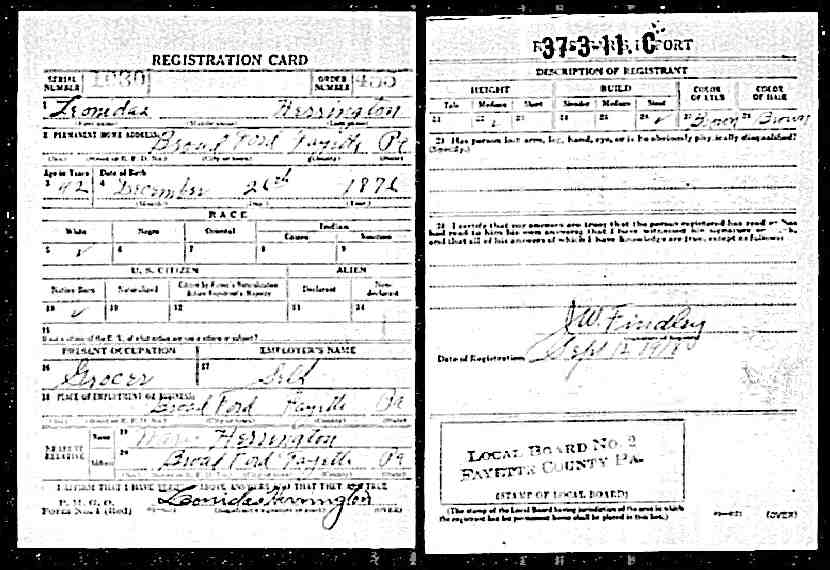 REGISTRATION CARD
SERIAL NUMBER 1930
ORDER NUMBER 455
1 Leonidas Herrington
(First name) (Middle name) (Last name)
2 PERMANENT HOME ADDRESS: Broad Ford Fayette Pa
(No.) (Street or R. F. D. No.) (City or town) (County) (State)
Age in Years Date of Birth
3 42 4 December 26th 1876
(Month) (Day) (Year)
RACE
White Negro Oriental Indian
Citizen Noncitizen
5 ✓ 6 7 8 9
U. S. CITIZEN ALIEN
Native Born Naturalized Citizen by Father's Naturalization Before Registrant's Majority Declarant Non-declarant
10 ✓ 11 12 13 14
15
If not a citizen of the U. S., of what nation are you a citizen or subject?
PRESENT OCCUPATION EMPLOYER'S NAME
16 Grocer 17 Self
18 PLACE OF EMPLOYMENT OR BUSINESS:
Broad Ford Fayette Pa
(No.) (Street or R. F. D. No.) (City or town) (County) (State)
NEAREST RELATIVE
Name 19 Herrington
Address 20 Broad Ford Fayette Pa
(No.) (Street or R. F. D. No.) (City or town) (County) (State)
I AFFIRM THAT I HAVE VERIFIED ABOVE ANSWERS AND THAT THEY ARE TRUE
P. M. G. O.
Form No. 1 (Red)
Leonidas Herrington
(Registrant's signature or mark) (OVER)
37-3-11 C
REGISTRAR'S REPORT
DESCRIPTION OF REGISTRANT
HEIGHT BUILD COLOR OF EYES COLOR OF HAIR
Tall Medium Short Slender Medium Stout
21 22 23 24 25 26 ✓ 27 Brown 28 Brown
29 Has person lost arm, leg, hand, eye, or is he obviously physically disqualified?
(Specify.)
30 I certify that my answers are true; that the person registered has read or has
had read to him his own answers; that I have witnessed his signature or
and that all of his answers of which I have knowledge are true, except as follows:
J.W. Findley
Date of Registration Sept 12 1918
LOCAL BOARD NO. 2
FAYETTE COUNTY PA.
(STAMP OF LOCAL BOARD)
(The stamp of the Local Board having jurisdiction of the area in which
the registrant has his permanent home shall be placed in this box.)
(OVER)